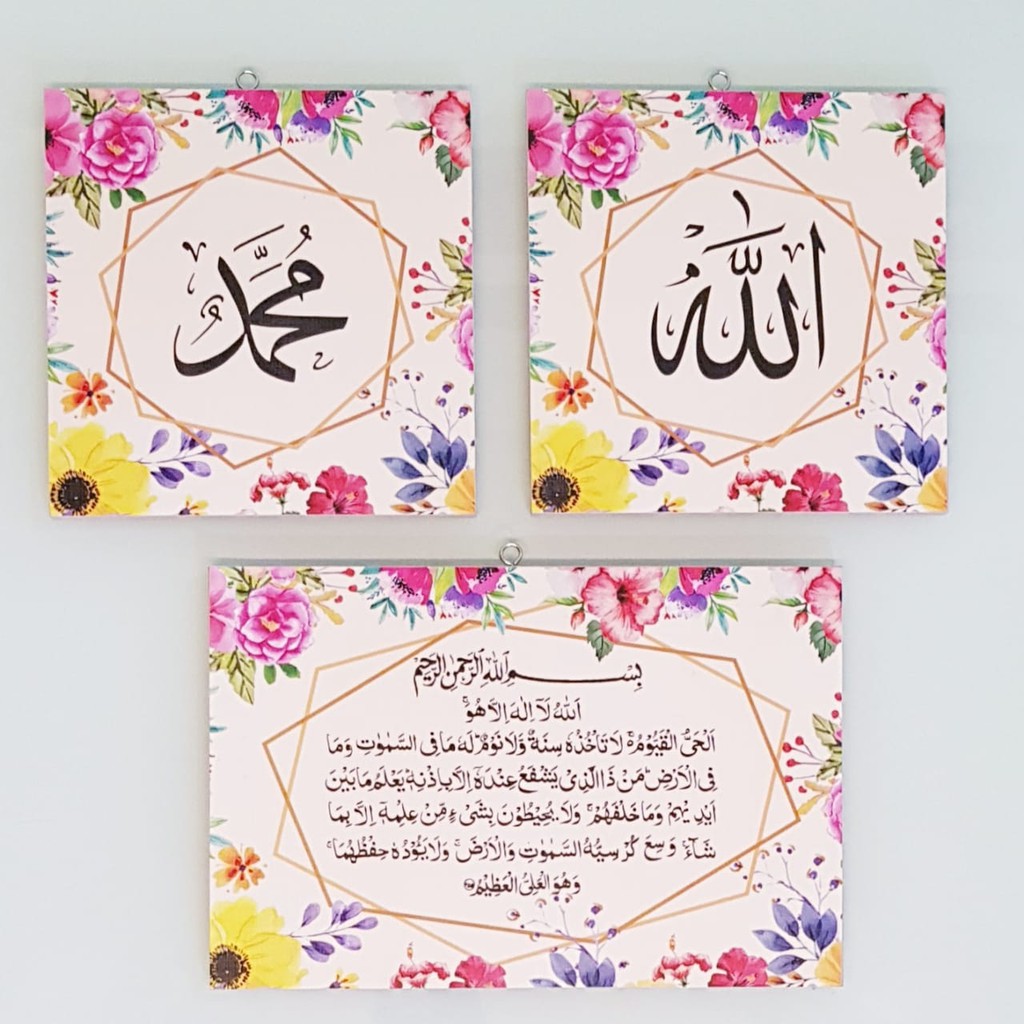 الله
مُحَمَّد
بِسْمِ اللهِ الرَّحْمٰنِ الرَّحِيْمِ
اَللهُ لَآ اِلٰهَ اِلَّا هُوَۚ
اَلْحَيُّ الْقَيُّوْمُ ەۚ لَا تَأْخُذُهٗ سِنَةٌ وَّلَا نَوْمٌؕ لَهٗ مَا فِى السَّمٰوٰتِ وَمَا
فِى الْاَرْضِؕ مَنْ ذَا الَّذِيْ يَشْفَعُ عِنْدَهٗٓ اِلَّا بِاِذْنِهٖؕ يَعْلَمُ مَا بَيْنَ
اَيْدِيْهِمْ وَمَا خَلْفَهُمْۚ وَلَا يُحِيْطُوْنَ بِشَيْءٍ مِّنْ عِلْمِهٖٓ اِلَّا بِمَا
شَآءَۚ وَسِعَ كُرْسِيُّهُ السَّمٰوٰتِ وَالْاَرْضَۚ وَلَا يَـُٔوْدُهٗ حِفْظُهُمَاۚ
وَهُوَ الْعَلِيُّ الْعَظِيْمُ